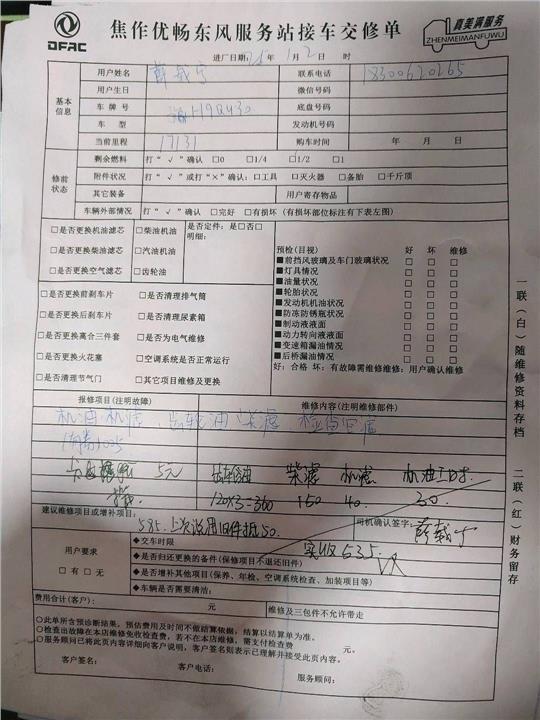 DFAC
焦作优畅东风服务站接车交修单
真美满服务
ZHENMEIMANFUWU
进厂日期: 年 1月2日 时
基本信息
用户姓名 薛载宁 联系电话 18300620265
用户生日 微信号码
车牌号 H9QU30 底盘号码
车型 发动机号码
当前里程 17131 购车时间 年 月 日
修前状态
剩余燃料 打“√”确认 □0 □1/4 □1/2 □1
附件状况 打“√”或打“×”确认:□工具 □灭火器 □备胎 □千斤顶
其它装备 用户寄存物品
车辆外部情况 打“√”确认 □完好 □有损坏(有损坏部位标注有下表左图)
□是否更换机油滤芯 □柴油机油 是否定件:是□否□
□是否更换柴油滤芯 □汽油机油 明细:
□是否更换空气滤芯 □齿轮油
□是否更换前刹车片 □是否清理排气筒
□是否更换后刹车片 □是否清理尿素箱
□是否更换离合三件套 □是否为电气维修
□是否更换火花塞 □空调系统是否正常运行
□是否清理节气门 □其它项目维修及更换
预检(目视) 好 坏 维修
■前挡风玻璃及车门玻璃状况 □ □ □
■灯具情况 □ □ □
■油量状况 □ □ □
■轮胎状况 □ □ □
■发动机机油状况 □ □ □
■防冻防锈瓶状况 □ □ □
■制动液液面 □ □ □
■动力转向液液面 □ □ □
■变速箱漏油情况 □ □ □
■后桥漏油情况 □ □ □
好:合格 坏:有故障需维修维修:用户确认维修
报修项目(注明故障) 维修内容(注明维修部件)
机油机滤 齿轮油 柴滤 检查
5元 齿轮油 柴滤 机滤 机油工时
120×3=360 150 40. 30.
建议维修项目或增补项目: 585. 上次说用旧件抵50. 司机确认签字: 薛载宁
实收535.
用户要求
□有 □无
◆交车时限
◆是否归还更换的备件(保修项目不退还旧件)
◆是否增补其他项目(保养、年检、空调系统检查、加装项目等)
◆车辆是否需要清洁:
费用合计(客户): 元 维修及三包件不允许带走
○此单所含预诊断结果,预估费用及时间不做结算依据,结算以结算单为准。
○检查出故障在本店维修免收检查费,若不在本店维修,需支付检查费 元。
○服务顾问已将此页内容详细向客户说明,客户签名则表示已理解并接受此页内容。
客户签名: 客户电话: 服务顾问:
一联(白)随维修资料存档
二联(红)财务留存